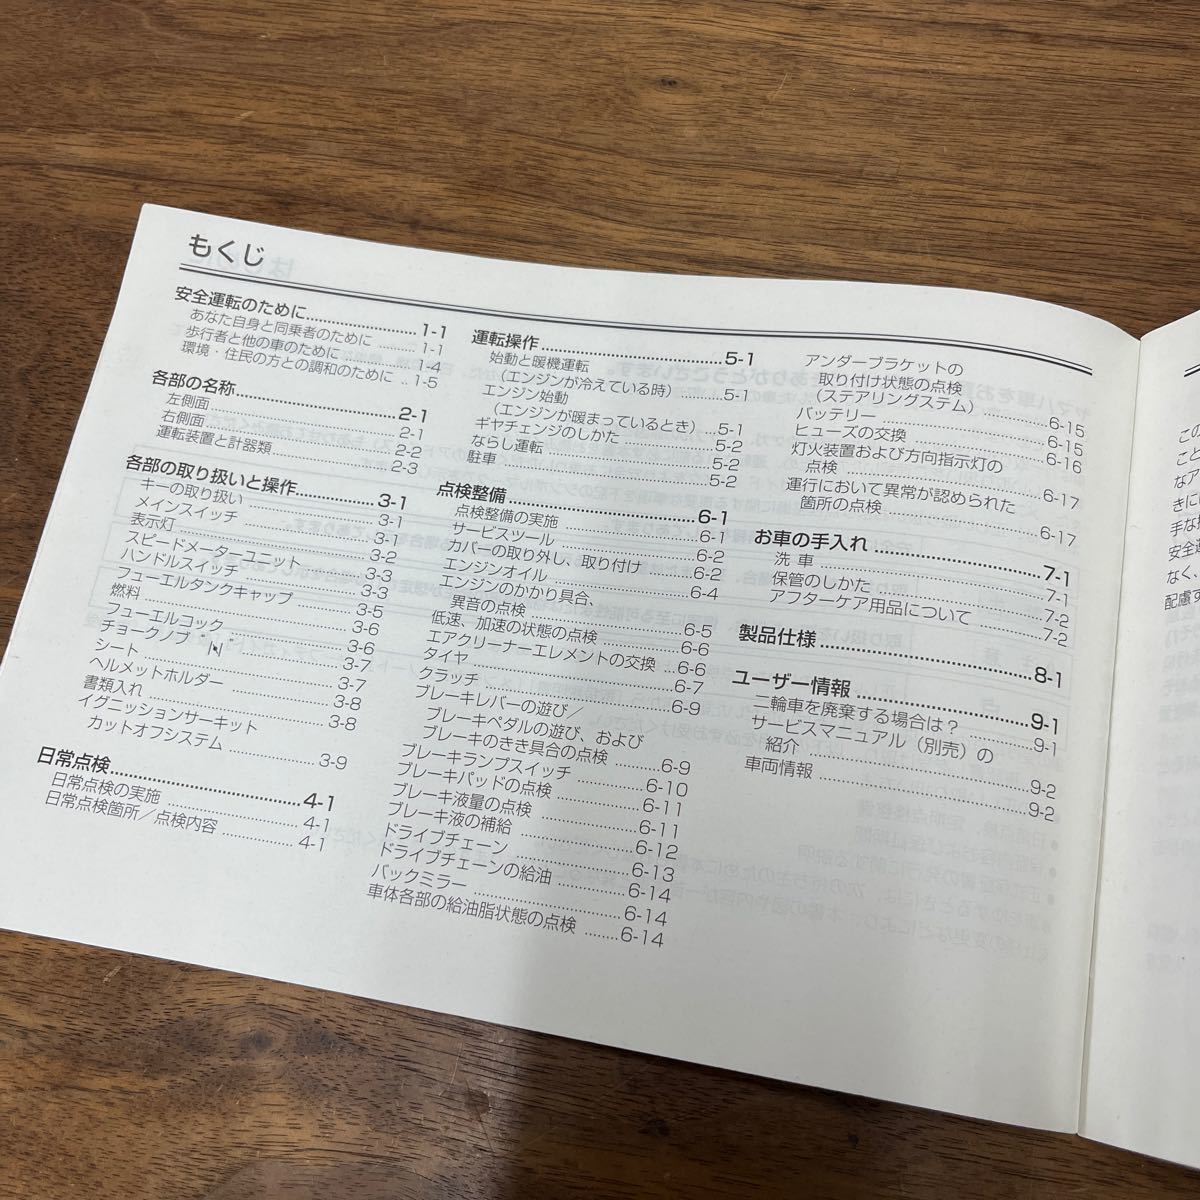 もくじ
安全運転のために 1-1
あなた自身と同乗者のために 1-1
歩行者と他の車のために 1-4
環境・住民の方との調和のために 1-5
各部の名称 2-1
左側面 2-1
右側面 2-2
運転装置と計器類 2-3
各部の取り扱いと操作 3-1
キーの取り扱い 3-1
メインスイッチ 3-1
表示灯 3-2
スピードメーターユニット 3-3
ハンドルスイッチ 3-3
フューエルタンクキャップ 3-5
燃料 3-6
フューエルコック 3-6
チョークノブ 3-7
シート 3-7
ヘルメットホルダー 3-8
書類入れ 3-8
イグニッションサーキット
カットオフシステム 3-9
日常点検 4-1
日常点検の実施 4-1
日常点検箇所／点検内容 4-1
運転操作 5-1
始動と暖機運転
（エンジンが冷えている時） 5-1
エンジン始動
（エンジンが暖まっているとき） 5-1
ギヤチェンジのしかた 5-2
ならし運転 5-2
駐車 5-2
点検整備 6-1
点検整備の実施 6-1
サービスツール 6-2
カバーの取り外し、取り付け 6-2
エンジンオイル 6-4
エンジンのかかり具合、
異音の点検 6-5
低速、加速の状態の点検 6-6
エアクリーナーエレメントの交換 6-6
タイヤ 6-7
クラッチ 6-9
ブレーキレバーの遊び／
ブレーキペダルの遊び、および
ブレーキのきき具合の点検 6-9
ブレーキランプスイッチ 6-10
ブレーキパッドの点検 6-11
ブレーキ液量の点検 6-11
ブレーキ液の補給 6-12
ドライブチェーン 6-13
ドライブチェーンの給油 6-14
バックミラー 6-14
車体各部の給油脂状態の点検 6-14
アンダーブラケットの
取り付け状態の点検
（ステアリングステム） 6-15
バッテリー 6-15
ヒューズの交換 6-16
灯火装置および方向指示灯の
点検 6-17
運行において異常が認められた
箇所の点検 6-17
お車の手入れ 7-1
洗車 7-1
保管のしかた 7-2
アフターケア用品について 7-2
製品仕様 8-1
ユーザー情報 9-1
二輪車を廃棄する場合は？ 9-1
サービスマニュアル（別売）の
紹介 9-2
車両情報 9-2